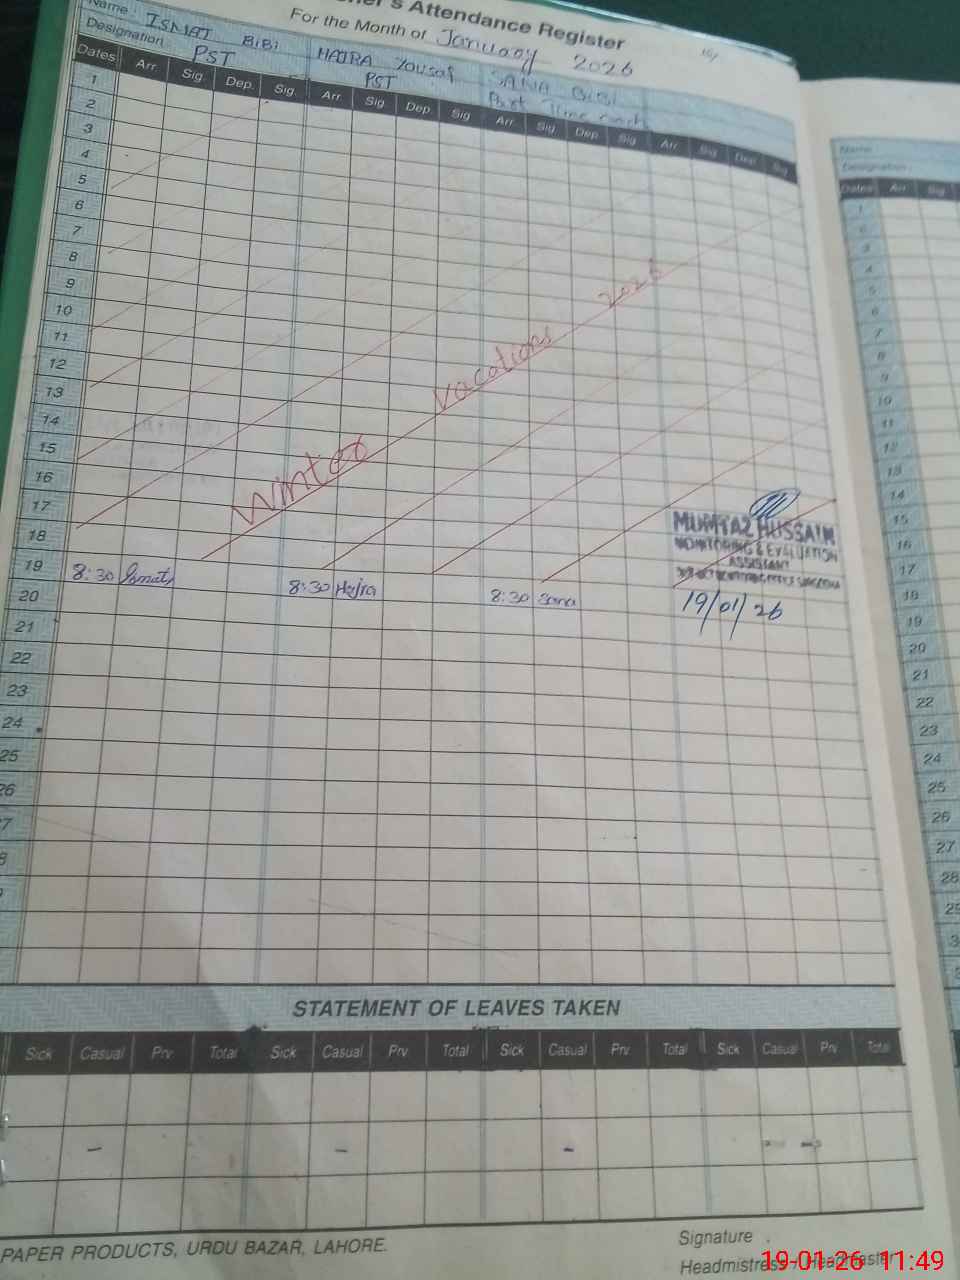 's Attendance Register
For the Month of January 2026
Name: ISMAT BiBi HAJRA Yousaf SANA BiBi
Designation: PST PST Part Time
Dates Arr. Sig. Dep. Sig. Arr. Sig. Dep. Sig Arr. Sig. Dep. Sig Arr. Sig. Dep. Sig.
1
2
3
4
5
6
7
8
9
10
11
12
13
14
15
16
17
18
19 8:30 Ismat 8:30 Hajra 8:30 Sana
20
21
22
23
24
25
26
Winter Vacations 2026
MUMTAZ HUSSAIN
MONITORING & EVALUATION
ASSISTANT
19/01/26
STATEMENT OF LEAVES TAKEN
Sick Casual Prv Total Sick Casual Prv. Total Sick Casual Prv Total Sick Casual Prv Total
- - -
PAPER PRODUCTS, URDU BAZAR, LAHORE.
Signature
Headmistress / Headmaster
Name
Designation:
Dates Arr. Sig.
1
2
3
4
5
6
7
8
9
10
11
12
13
14
15
16
17
18
19
20
21
22
23
24
25
26
27
28
19-01-26 11:49